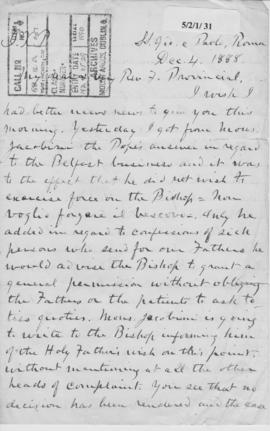 5/2/1/31
ARCHIVES
MOUNT ARGUS, DUBLIN 6
SS. Gio. e Paolo, Roma
Dec. 4. 1888
My dear Rev. F. Provincial,
I wish I
had better news to give you this
morning. Yesterday I got from Mons.
Jacobini the Popes answer in regard
to the Belfast business and it was
to the effect that he did not wish to
exercise force on the Bishop = Non
voglio il vescovo. Only he
added in regard to confessions of sick
persons who send for our Fathers he
would advise the Bishop to grant a
general permission without obliging
the Fathers or the patients to ask to
ties quoties. Mons. Jacobini is going
to write to the Bishop informing him
of the Holy Father's wish on this point
without mentioning at all the other
heads of complaint. You see that no
decision has been rendered and the case